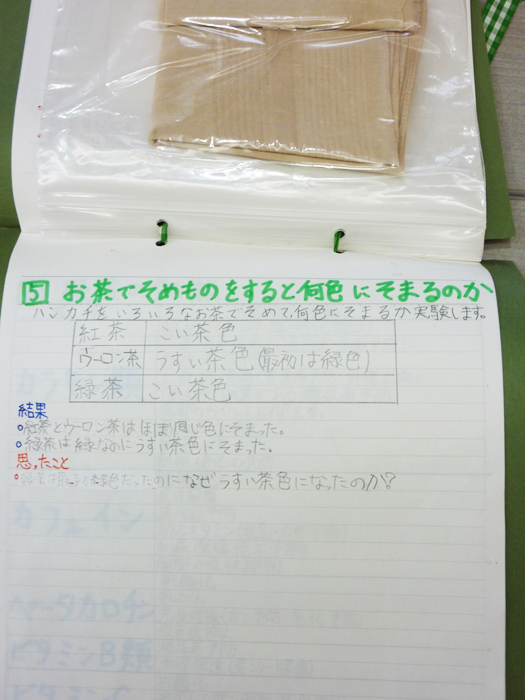 5 お茶でそめものをすると何色にそまるのか
ハンカチをいろいろなお茶でそめて、何色にそまるか実験します。
紅茶 こい茶色
ウーロン茶 うすい茶色(最初は緑色)
緑茶 こい茶色
結果
○紅茶とウーロン茶はほぼ同じ色にそまった。
○緑茶は緑なのにうすい茶色にそまった。
思ったこと
○緑色だったのになぜうすい茶色になったのか?
カフェイン
ベータカロチン
ビタミンB類
ビタミンC